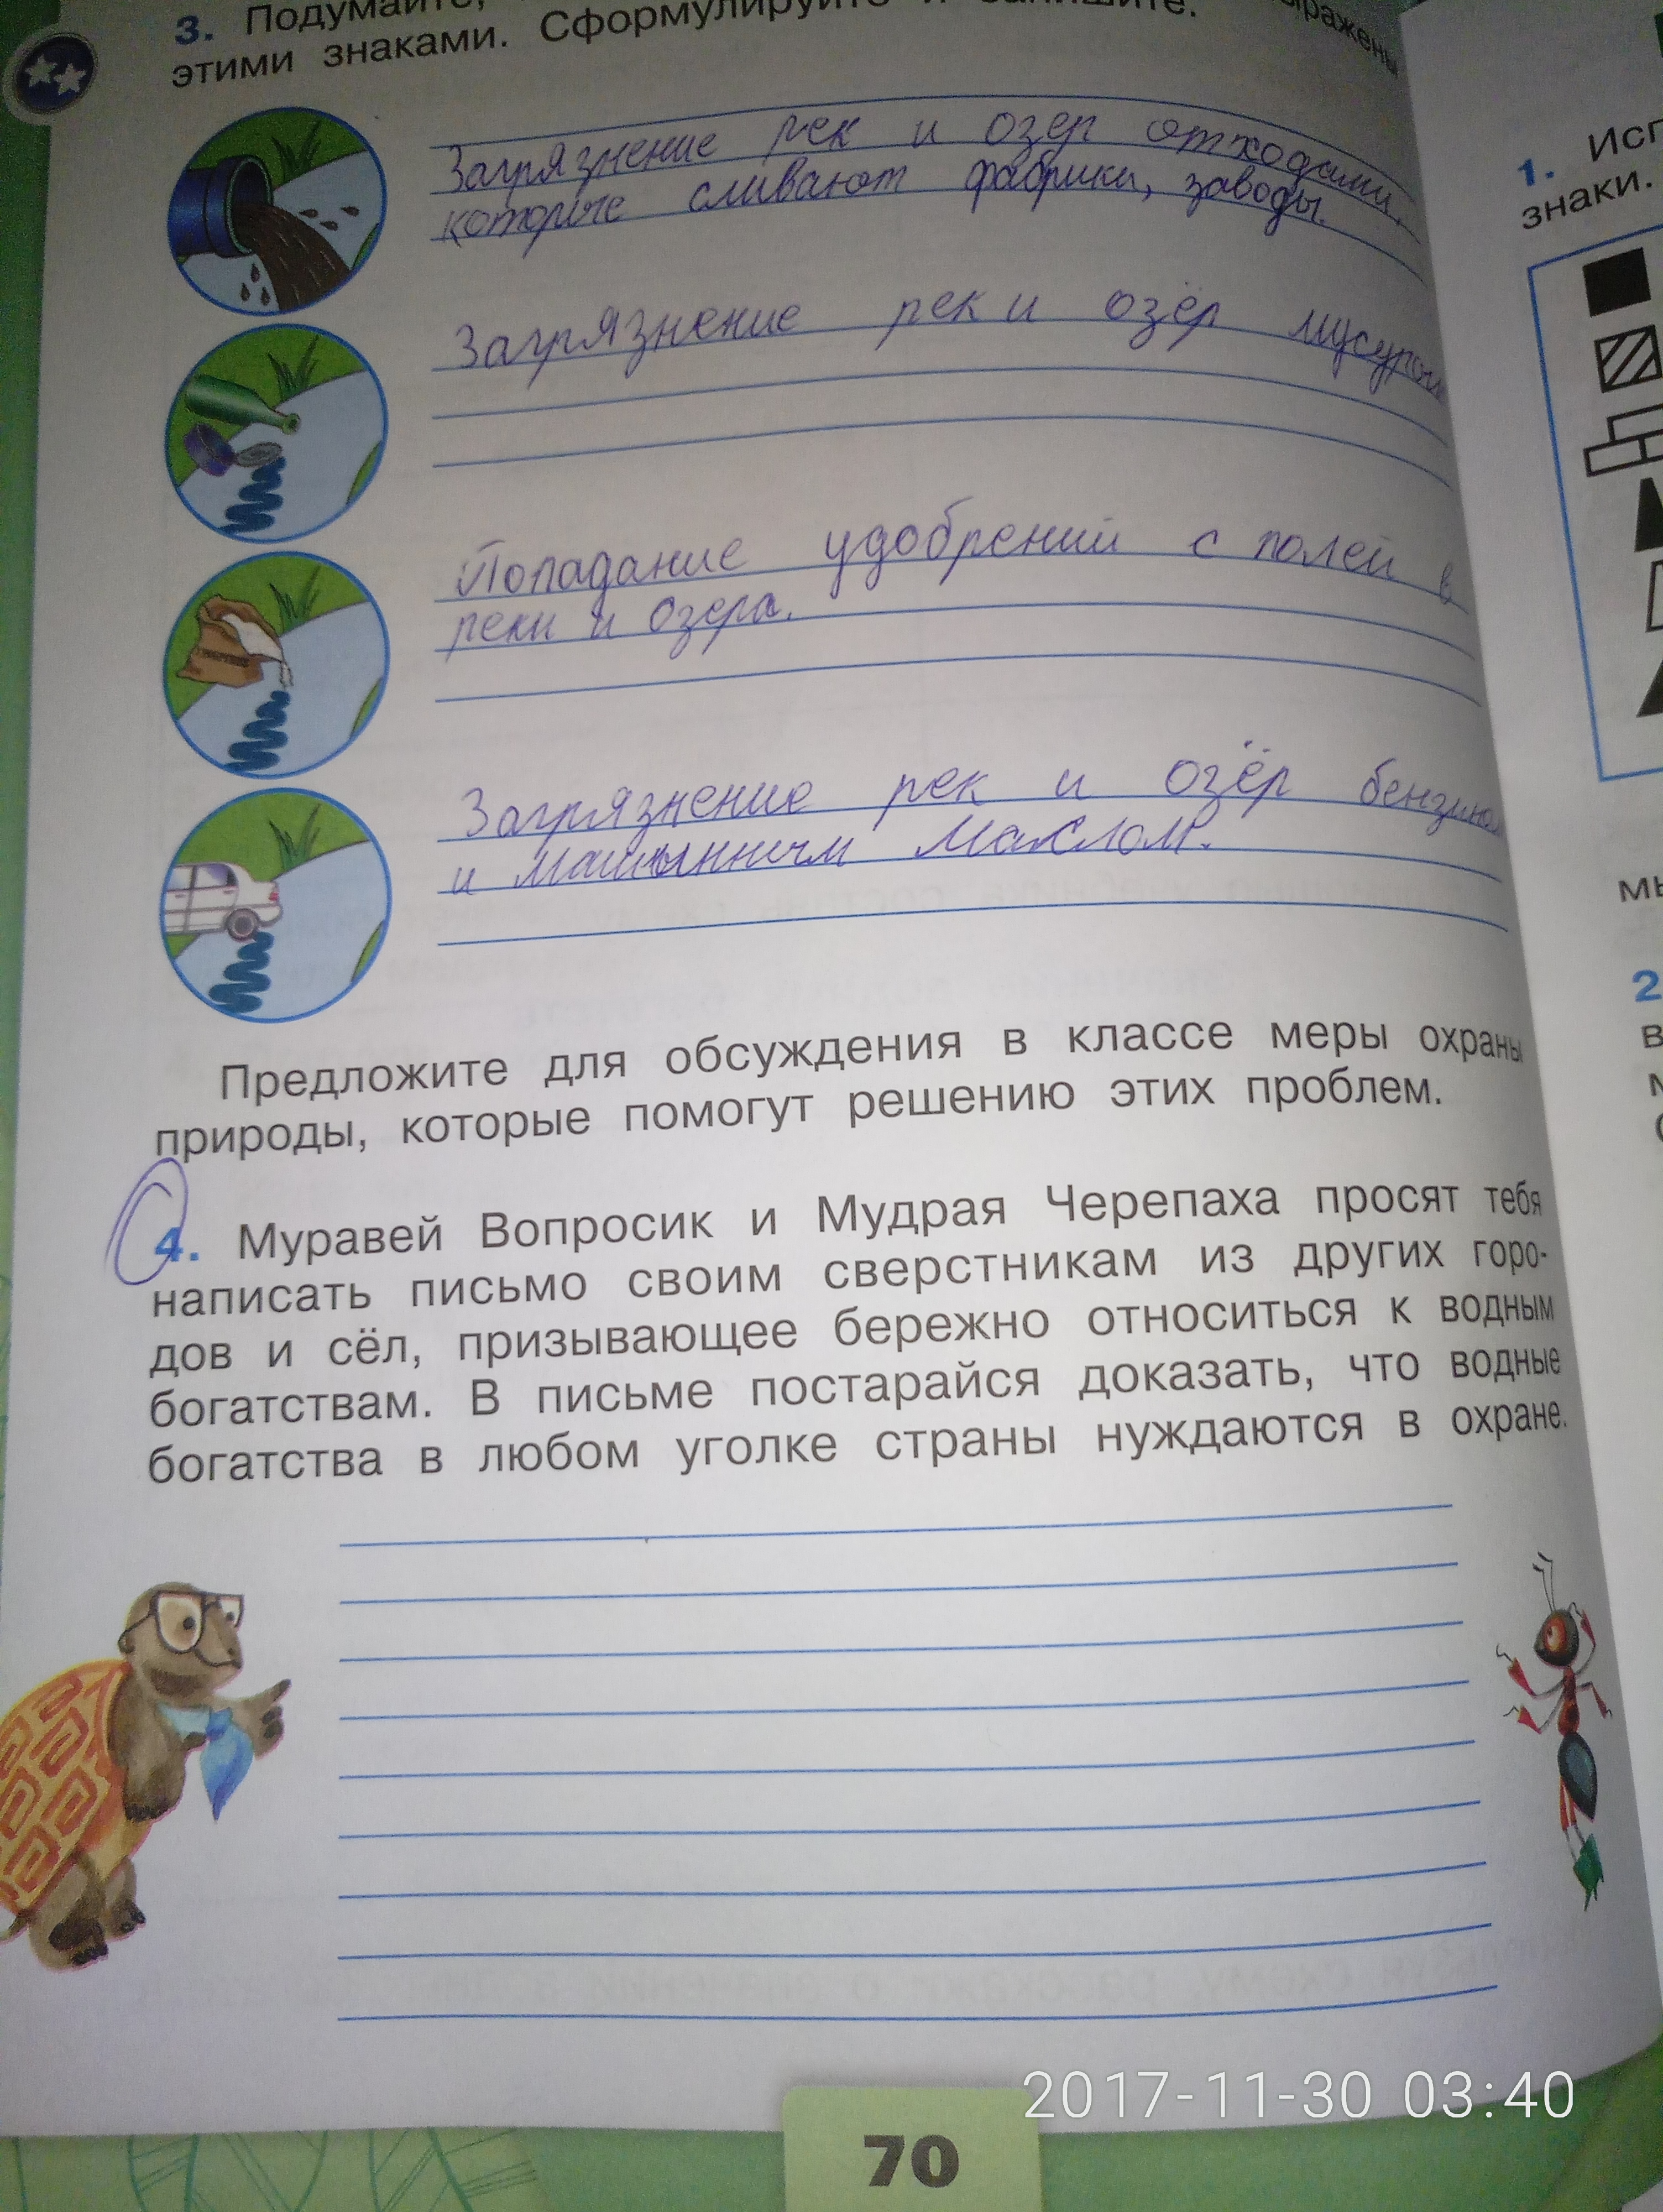 3. Подумайте,
этими знаками. Сформулируйте и запишите.
Загрязнение рек и озер отходами,
которые сливают фабрики, заводы.
Загрязнение рек и озёр мусором
Попадание удобрений с полей в
реки и озера.
Загрязнение рек и озёр бензино
и маслом.
Предложите для обсуждения в классе меры охраны
природы, которые помогут решению этих проблем.
4. Муравей Вопросик и Мудрая Черепаха просят тебя
написать письмо своим сверстникам из других горо-
дов и сёл, призывающее бережно относиться к водным
богатствам. В письме постарайся доказать, что водные
богатства в любом уголке страны нуждаются в охране.
70
1. Исп
знаки.
мы
2
2017-11-30 03:40